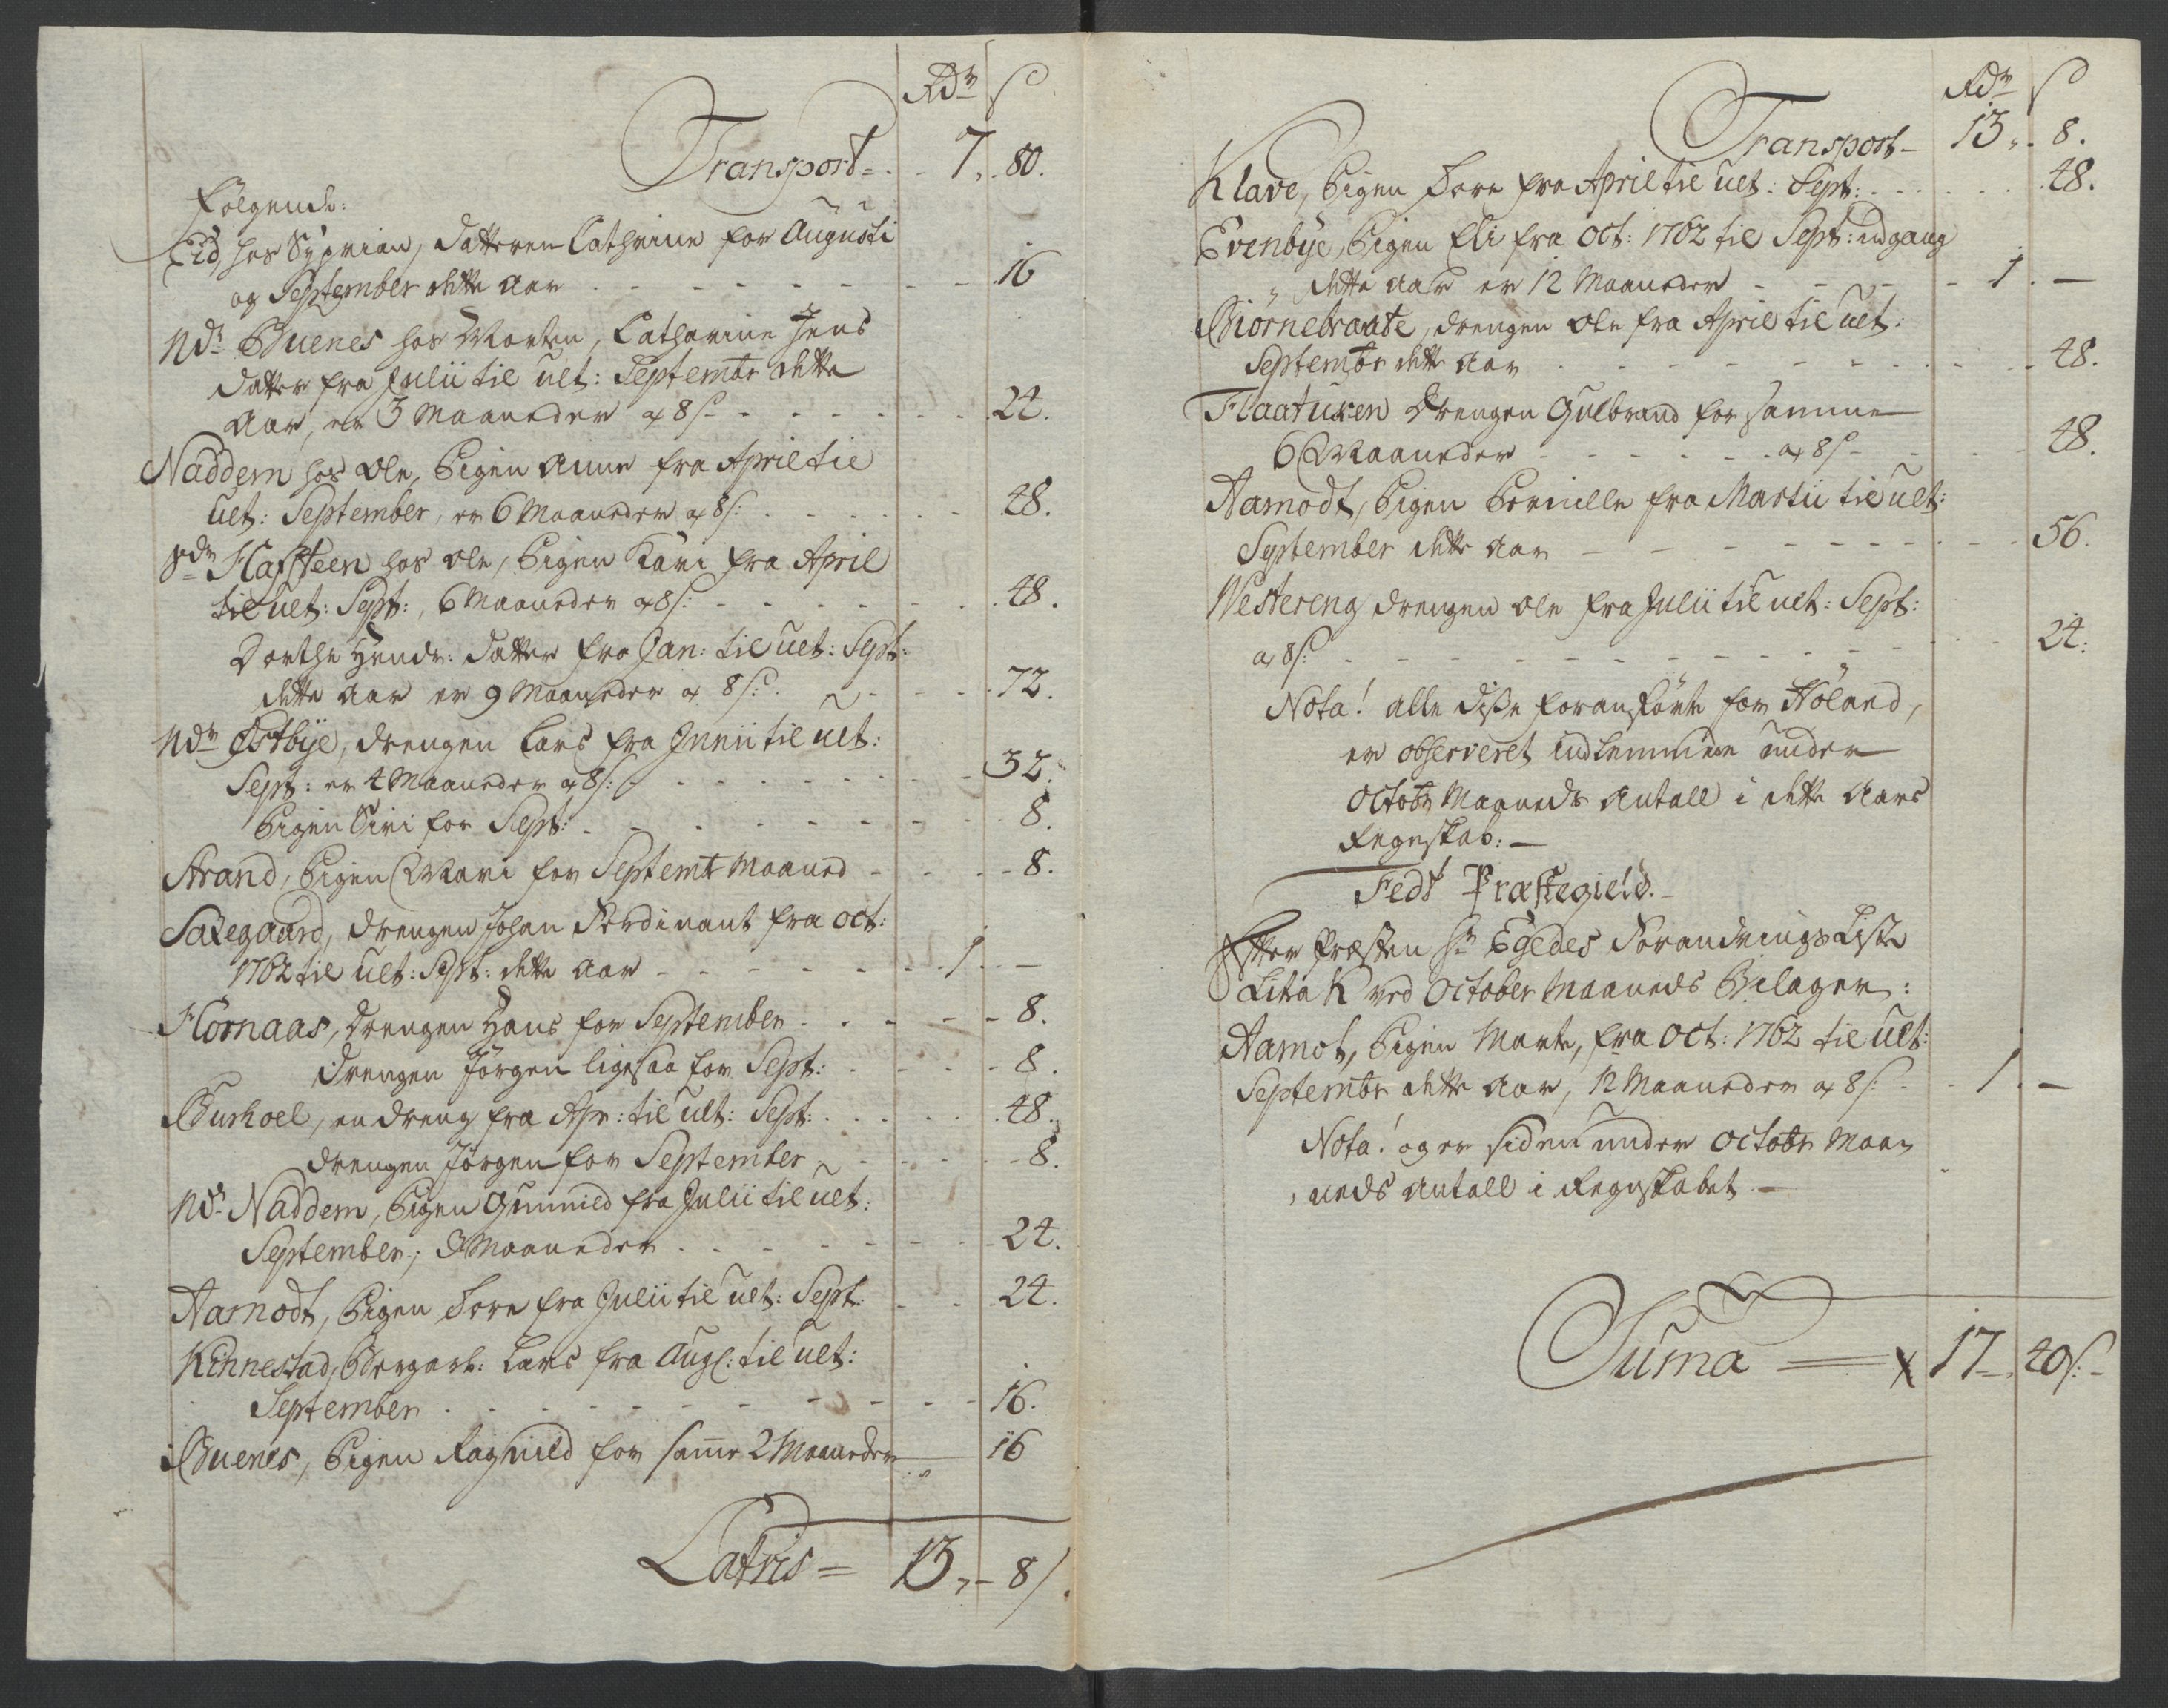 Rdr ß
Transport = 7 „ 80.
følgende:
Eid, hos Syprian, datteren Cathrine for Augusti
og September dette Aar - - - 16
Ndr Buenes hos Morten, Catharine Jens
datter fra Julii til ult: Septembr dette
Aar, er 3 Maaneder a 8 ß - - - 24.
Naddem hos Ole, Pigen Anne fra April til
ult: September, er 6 Maaneder a 8 ß: - - - 48.
Sdr Hafsteen hos Ole, Pigen Kari fra April
til ult: Sept:, 6 Maaneder a 8 ß: - - - 48.
Dorthe Hendr: datter fra Jan: til ult: Sept:
dette Aar er 9 Maaneder a 8 ß: - - - 72.
Ndr Østbÿe, drengen Lars fra Junii til ult:
Sept: er 4 Maaneder a 8 ß: - - - 32.
Pigen Siri for Sept: - - - 8.
Strand, Pigen Mari for Septembr Maaned - - - 8.
Salegaard, drengen Johan Ferdinant fra Oct:
1762 til ult: Sept: dette Aar - - - 1. -
Hornaas, drengen Hans for September - - - 8.
drengen Jørgen ligesaa for Sept: - - - 8.
Burhoel, en dreng fra Apr: til ult: Sept: - - - 48.
drengen Jørgen for September - - - 8.
Ndr Naddem, Pigen Gunnild fra Julii til ult:
September, 3 Maaneder - - - 24.
Aamodt, Pigen Dore fra Julii til ult: Sept: - - 24.
Kinnestad, Lars fra Aug: til ult:
September - - - 16.
Buenes, Pigen Ragnild for samme 2 Maaneder 16
Latris = 13 „ - 8 ß.
Rdr ß
Transport - 13 „ - 8.
Klave, Pigen Dore fra April til ult: Sept: - - - 48.
Evenbÿe, Pigen Eli fra Oct: 1762 til Sept: udgang
dette Aar er 12 Maaneder - - - 1. -
Biørnebraate, drengen Ole fra April til ult:
Septembr dette Aar - - - 48.
Flaatuven drengen Gulbrand for samme
6 Maaneder - - - a 8 ß - - - 48.
Aamodt, Pigen Pernille fra Martii til ult:
September dette Aar - - - 56.
Westereng drengen Ole fra Julii til ult: Sept:
a 8 ß: - - - 24:
Nota! alle disse foranførte for Høland,
er observeret indlemmede under
Octobr Maaneds Antall i dette Aars
Regnskab: -
Fedt Præstegield. -
Efter Præsten Hr Egedes Forandrings Liste
Litra K ved October Maaneds Bilager:
Aamot, Pigen Marte, fra Oct: 1762 til ult:
Septembr dette Aar, 12 Maaneder a 8 ß: - - 1. -
Nota! og er siden under Octobr Maa-
neds Antall i Regnskabet. -
Suma = x 17 - 40 ß: -